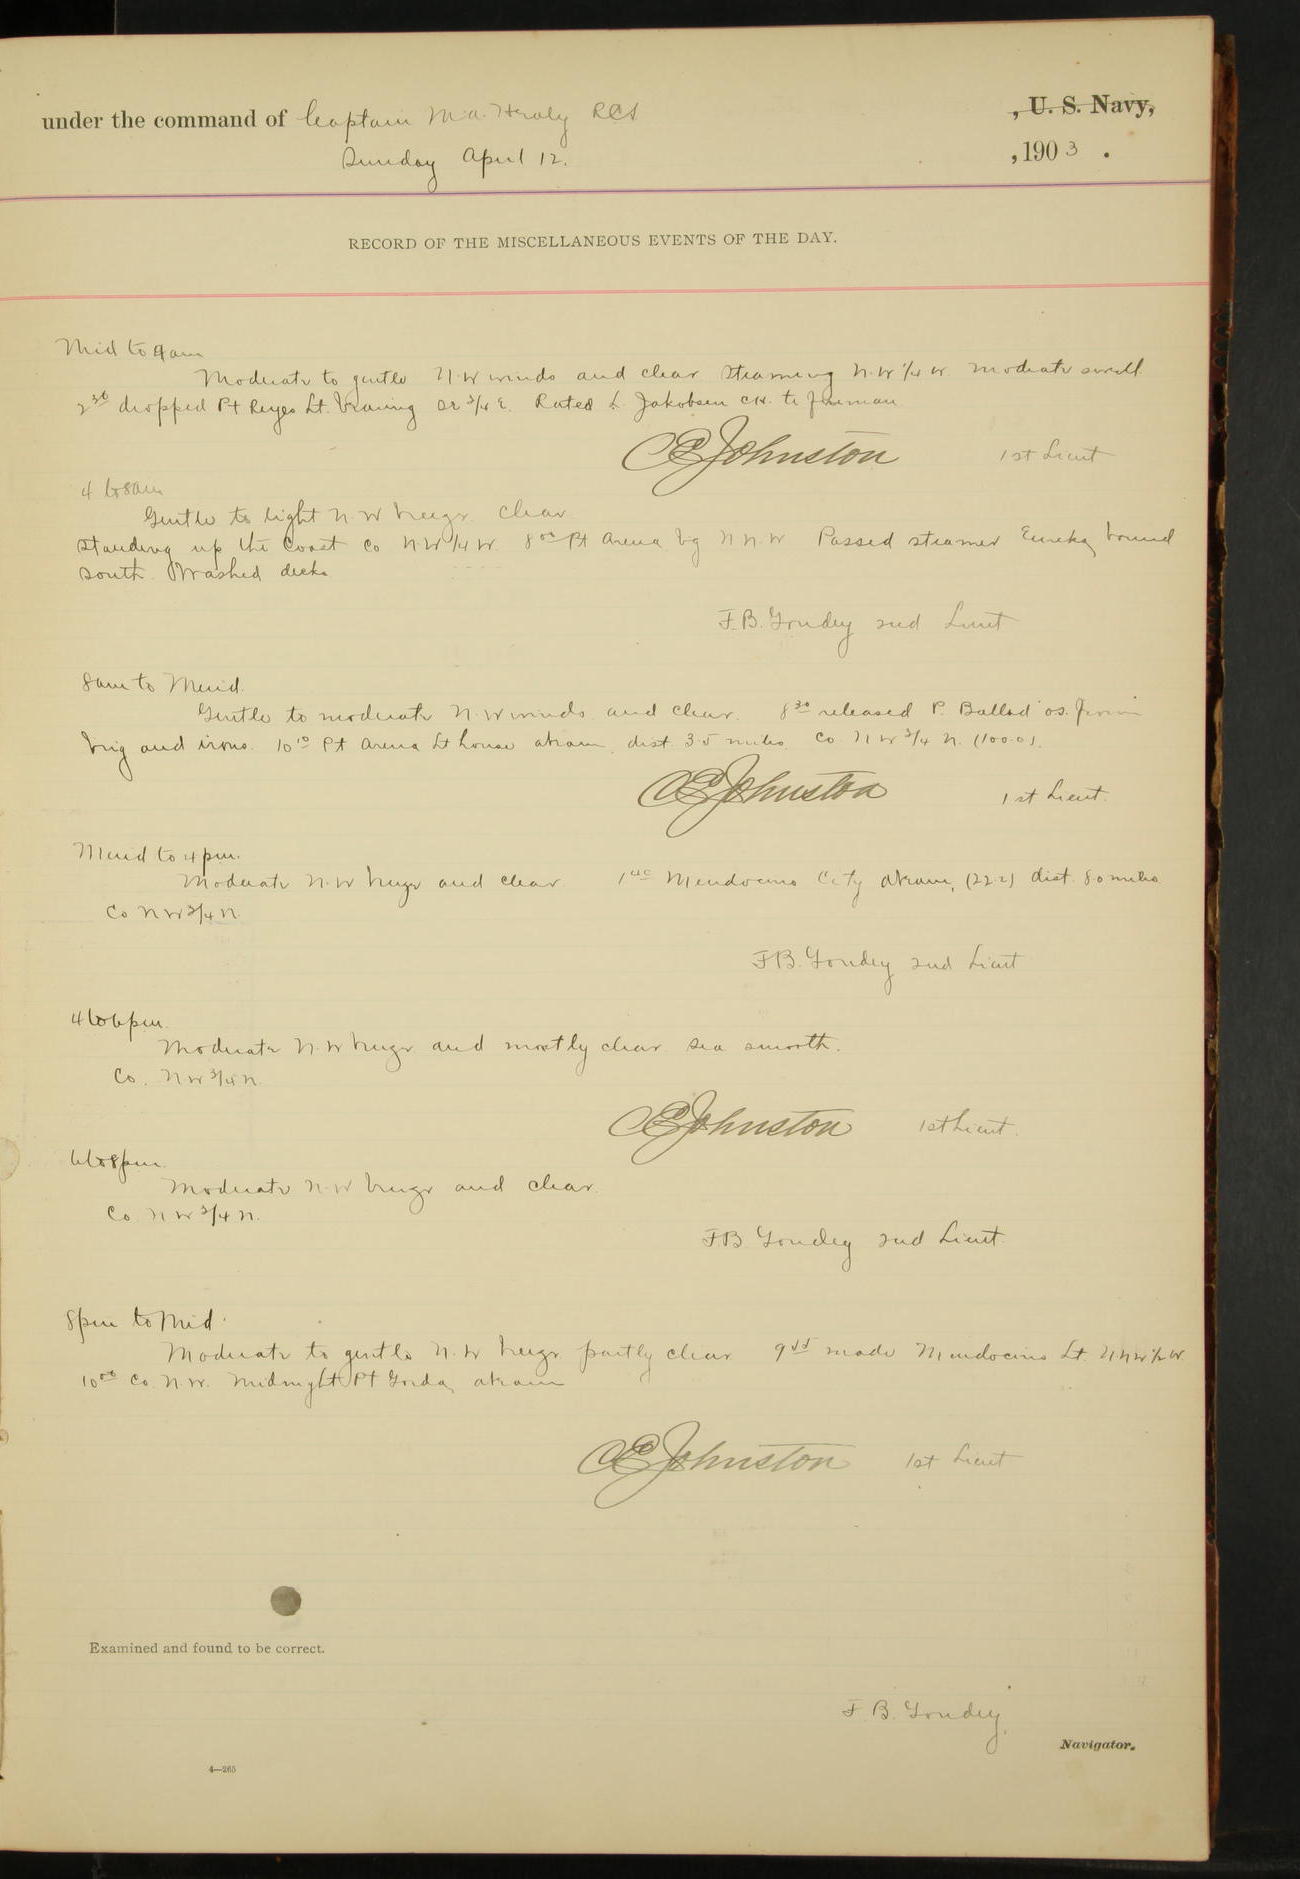 under the command of Captain M.A. Healy RCS , U. S. Navy,
Sunday April 12. , 1903 .
RECORD OF THE MISCELLANEOUS EVENTS OF THE DAY.
Mid to 4 am
Moderate to gentle N.W winds and clear Steaming N.W 1/4 W. Moderate swell
2 30 dropped Pt Reyes Lt. bearing SE 3/4 E. Rated L. Jakobsen to fireman
CEJohnston 1st Lieut
4 to 8am
Gentle to light N.W breeze. Clear
Standing up the Coast Co NW 1/4 W. 8 00 Pt Arena bg N N.W Passed steamer Eureka, bound
South. Washed decks
F.B. Goudey 2nd Lieut
8am to Merid.
Gentle to moderate N.W winds and clear. 8 30 released P. Ballad os. from
brig and irons. 10 10 Pt Arena Lt house abeam, dist. 3.5 miles. Co. NW 3/4 N. (100.0).
CEJohnston 1st Lieut.
Merid to 4 pm.
Moderate N.W breeze and clear 1 40 Mendocino City abeam, (22.2) dist. 8.0 miles
Co NW 3/4 N.
F.B. Goudey 2nd Lieut
4 to 6pm.
Moderate N.W breeze and mostly clear sea smooth.
Co. NW 3/4 N.
CEJohnston 1st Lieut.
6 to 8pm.
Moderate N.W breeze and clear.
Co. NW 3/4 N.
F.B Goudey 2nd Lieut.
8pm to Mid.
Moderate to gentle N.W breeze partly clear 9 55 made Mendocino Lt. NNW 1/2 W.
10 00 Co. N.W. Midnight Pt Gorda, abeam
CEJohnston 1st Lieut
Examined and found to be correct.
F. B. Goudey,
Navigator.
4—265